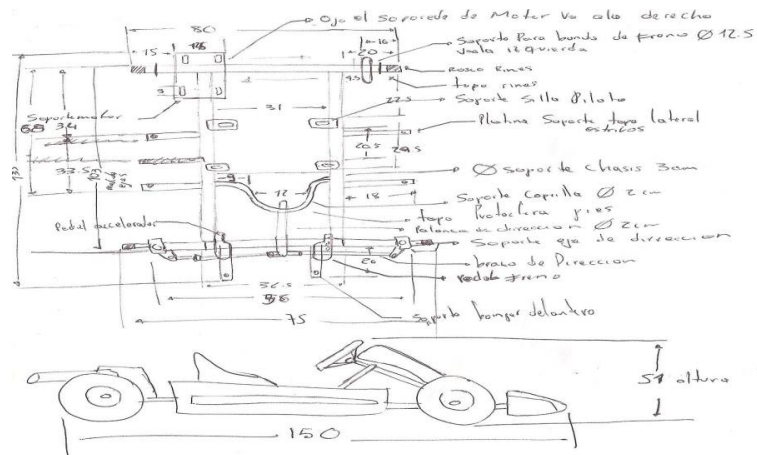 80
Ojo el soporede de Motor va ala derecho
15
16
20
Soporte Para banda de freno Ø 12.5
vala izquierda
Rosco Rines
topo rines
9.5
31
22.5
Soporte Silla Piloto
Soportemotor
Platina Soporte topo lateral
estribos
34
33.5
103
20.5
29.5
Ø Soporte Chasis 3cm
9
12
18
Soporte Capilla Ø 2cm
Palanca de direccion Ø 2cm
Pedal accelerador
Soporte eje de dirreccion
brazo de Direccion
20
freno
36.5
75
Soporte bomper delantero
51 altura
150